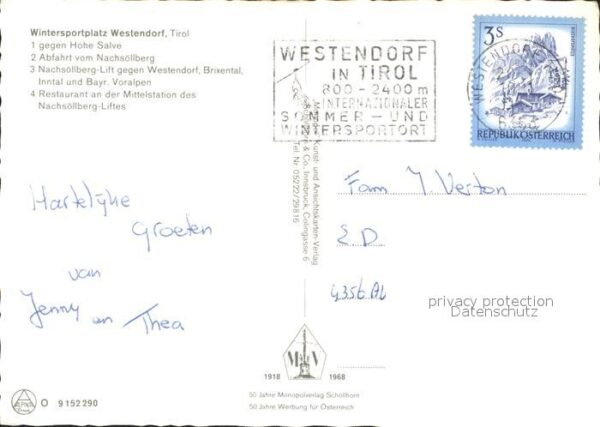 Wintersportplatz Westendorf, Tirol
1 gegen Hohe Salve
2 Abfahrt vom Nachsöllberg
3 Nachsöllberg-Lift gegen Westendorf, Brixental,
Inntal und Bayr. Voralpen
4 Restaurant an der Mittelstation des
Nachsöllberg-Liftes
WESTENDORF
IN TIROL
800-2400m
INTERNATIONALER
SOMMER-UND
WINTERSPORTORT
3S
WESTENDORF
REPUBLIK ÖSTERREICH
Kunst- und Ansichtskarten-Verlag
& Co., Innsbruck, Colingasse 6
Tel. Nr. 05222/29816
Hartelijke
Groeten
van
Jenny en Thea
Fam J. Verton
privacy protection
Datenschutz
M V
1918 1968
50 Jahre Monopolverlag Schöllhorn
50 Jahre Werbung für Österreich
O 9152290